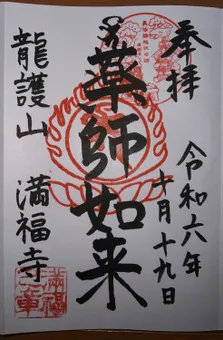 奉拝
令和六年
十月十九日
薬師如来
龍護山
満福寺